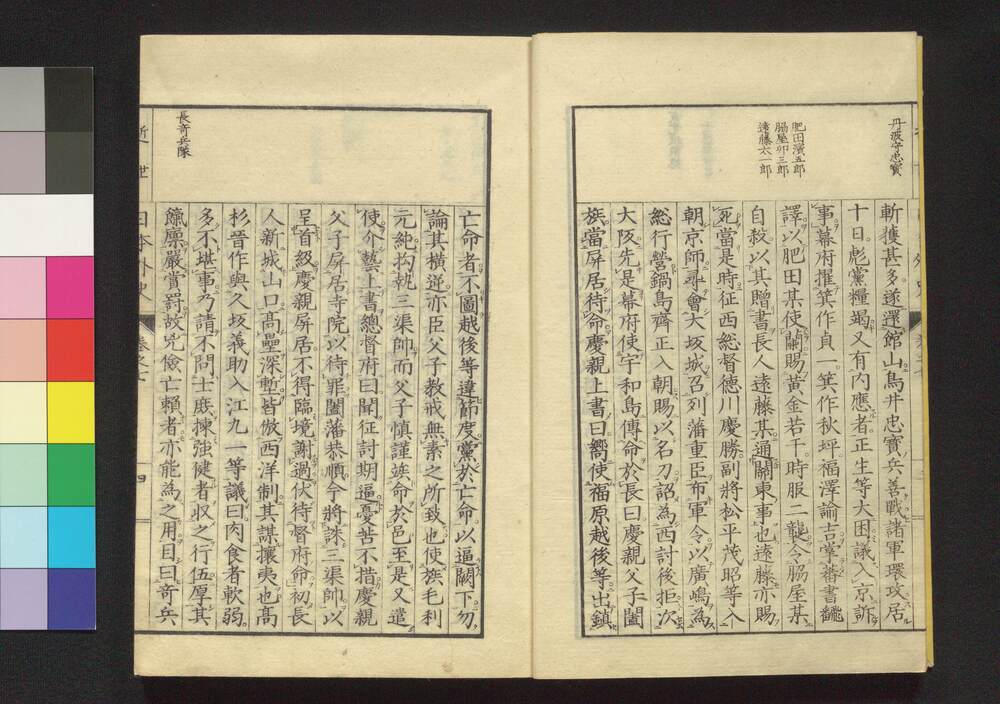 丹波守忠寶
肥田濱五郎
脇屋卯三郎
遠藤太一郎
斬獲甚多遂還館山鳥井忠寶兵善戰諸軍環攻居
十日彪黨糧竭又有内應者正生等大困議入京訴
事幕府擢箕作貞一箕作秋坪福澤諭吉掌蕃書飜
譯以肥田某使蘭賜黄金若干時服二襲令脇屋某
自殺以其贈書長人遠藤某通關東事也遠藤亦賜
死當是時征西総督徳川慶勝副將松平茂昭等入
朝京師尋會大坂城召列藩重臣布軍令以廣嶋為
総行營鍋島齊正入朝賜以名刀詔為西討後拒次
大阪先是幕府使宇和島傳命於長曰慶親父子闔
族當屏居待命慶親上書曰嚮使福原越後等出鎮
長奇兵隊
亡命者不圖越後等違節度黨於亡命以逼闕下勿
論其横逆亦臣父子教戒無素之所致也使族毛利
元純拘執三渠帥而父子慎謹竢命於邑至是又遣
使介藝上書總督府曰聞征討期逼憂苦不措慶親
父子屏居寺院以待罪闔藩恭順今將誅三渠帥以
呈首級慶親屏居不得臨境謝過伏待督府命初長
人新城山口高壘深塹皆倣西洋制其謀攘夷也高
杉晋作與久坂義助入江九一等議曰肉食者軟弱
多不堪事乃請不問士庶揀強健者収之行伍厚其
餼廩嚴賞罰故兇儉亡頼者亦能為之用目曰奇兵
近世
日本外史
四